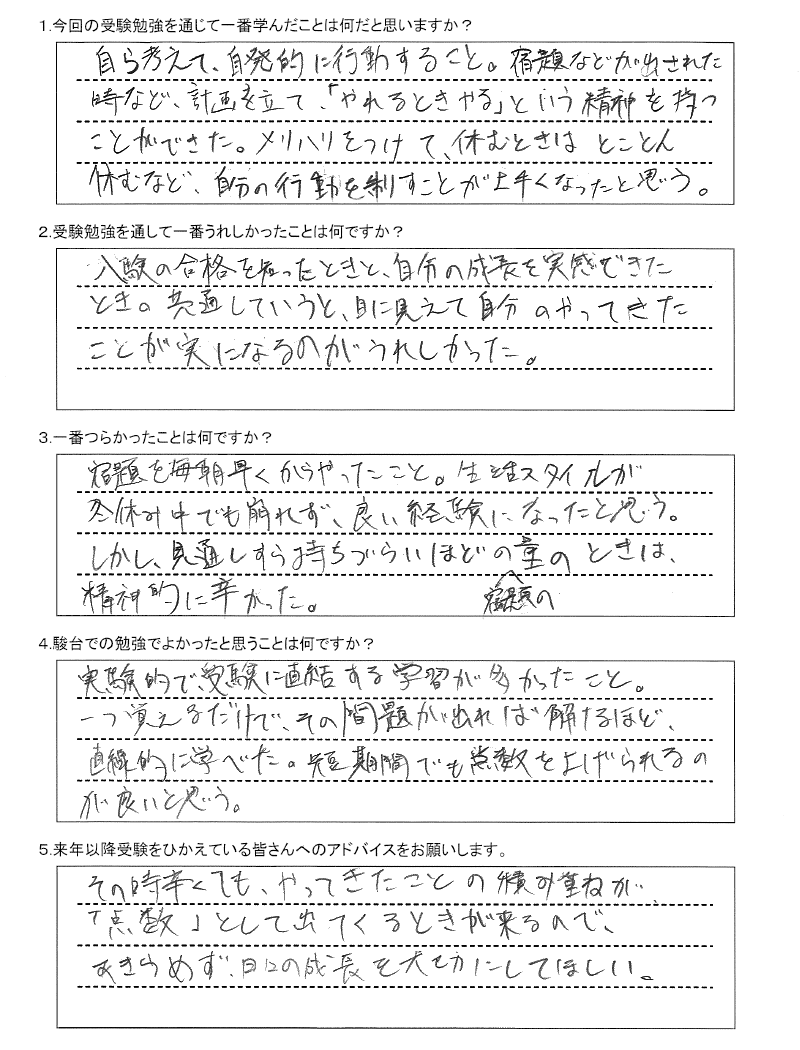 1.今回の受験勉強を通じて一番学んだことは何だと思いますか？
自ら考えて、自発的に行動すること。宿題などが出された
時など、計画を立て、「やれるときやる」という精神を持つ
ことができた。メリハリをつけて、休むときは とことん
休むなど、自分の行動を制すことが上手くなったと思う。
2.受験勉強を通して一番うれしかったことは何ですか？
入験の合格を知ったときと、自分の成長を実感できた
とき。共通していうと、目に見えて自分のやってきた
ことが実になるのがうれしかった。
3.一番つらかったことは何ですか？
宿題を毎朝早くからやったこと。生活スタイルが
冬休み中でも崩れず、良い経験になったと思う。
しかし、見通しすら持ちづらいほどの量のときは、
精神的に辛かった。 宿題の
4.駿台での勉強でよかったと思うことは何ですか？
実験的で、受験に直結する学習が多かったこと。
一つ覚えるだけで、その問題が出れば解けるほど、
直線的に学べた。短期間でも点数を上げられるの
が良いと思う。
5.来年以降受験をひかえている皆さんへのアドバイスをお願いします。
その時辛くても、やってきたことの積み重ねが、
「点数」として出てくるときが来るので、
あきらめず、日々の成長を大切にしてほしい。